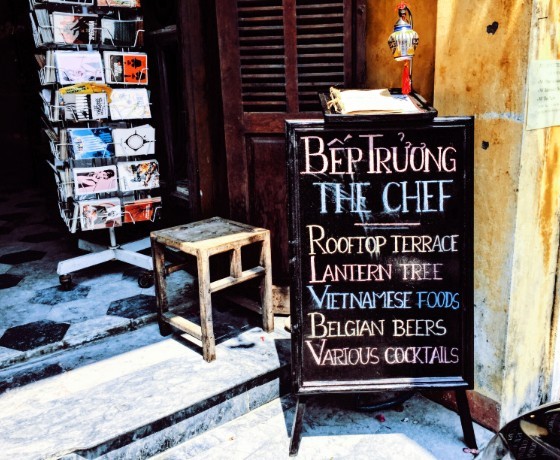 BẾP TRƯỞNG
THE CHEF
ROOFTOP TERRACE
LANTERN TREE
VIETNAMESE FOODS
BELGIAN BEERS
VARIOUS COCKTAILS